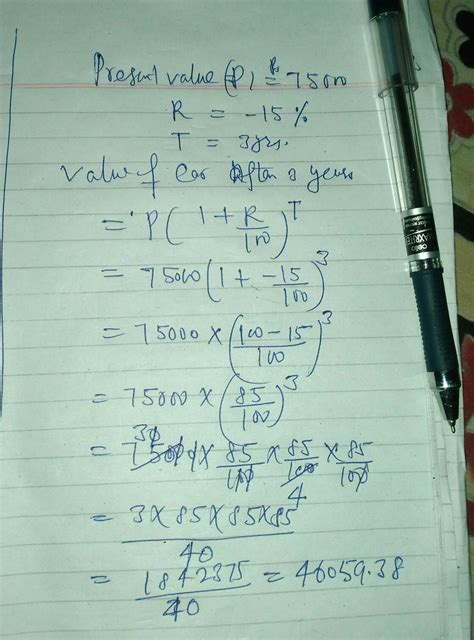 Present value (P) = 75000
R = -15%
T = 3yrs.
Value of Car After 3 years
= P(1 + R/100)^T
= 75000(1 + -15/100)^3
= 75000 × (100-15/100)^3
= 75000 × (85/100)^3
30
= 75000 × 85/100 × 85/100 × 85/100
4
= 3×85×85×85/40
= 1842375/40 = 46059.38
cello
MAXRITER